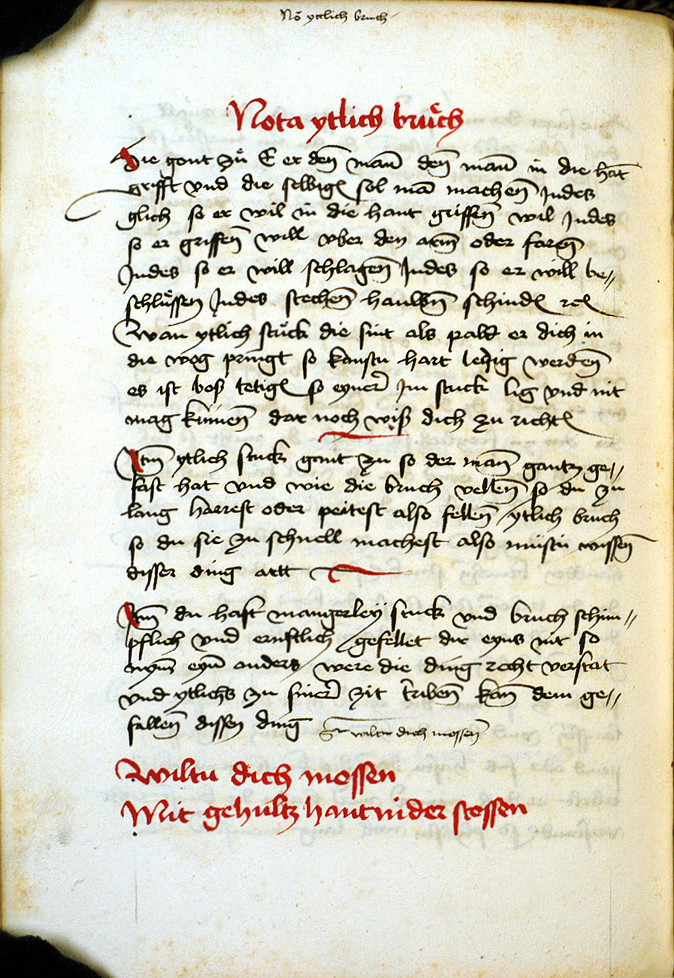 Nō ytlich bruch
Nota ytlich brůch
Die gont zů E er den̄ man̄ den̄ man̄ in die hāt
grifft vnd die selbigē sol mā machen̄ Indes
glich so er wil in die hant griffen̄ wil Indes
so er griffen̄ will vber den arm̄ oder
Indes so er will schlagen̄ Indes so er will be„
schlůssen Indes stechen̄ schindē
wan ytlich stůck die sint als pald er dich in
die wog pringt so kanstu hart ledig werden̄
es ist boß so eyner Im stuck lig vnd nit
mag kům̄en̄ dar noch wiß dich zu richtē
Itm̄ ytlich stuck gont zu so der man̄ gantz ge„
fast hat vnd wie die bruch vellen̄ so du zu
lang harrest oder peitest also fellen̄ ytlich bruch
so du sie zu schnell machest also mustu wissen̄
disser ding artt
Itm̄ du hast mangerley stuck vnd bruch schim„
pflich vnd ernstlich gefellet dir eyns nit so
nym̄ eyn̄ anders were die ding recht verstat
vnd ytlichs zu siner zit triben̄ kan̄ dem ge„
fallen̄ dissen ding wiltu dich mossen̄
Wiltu dich mossen
Mit gehultz hant nider stossen